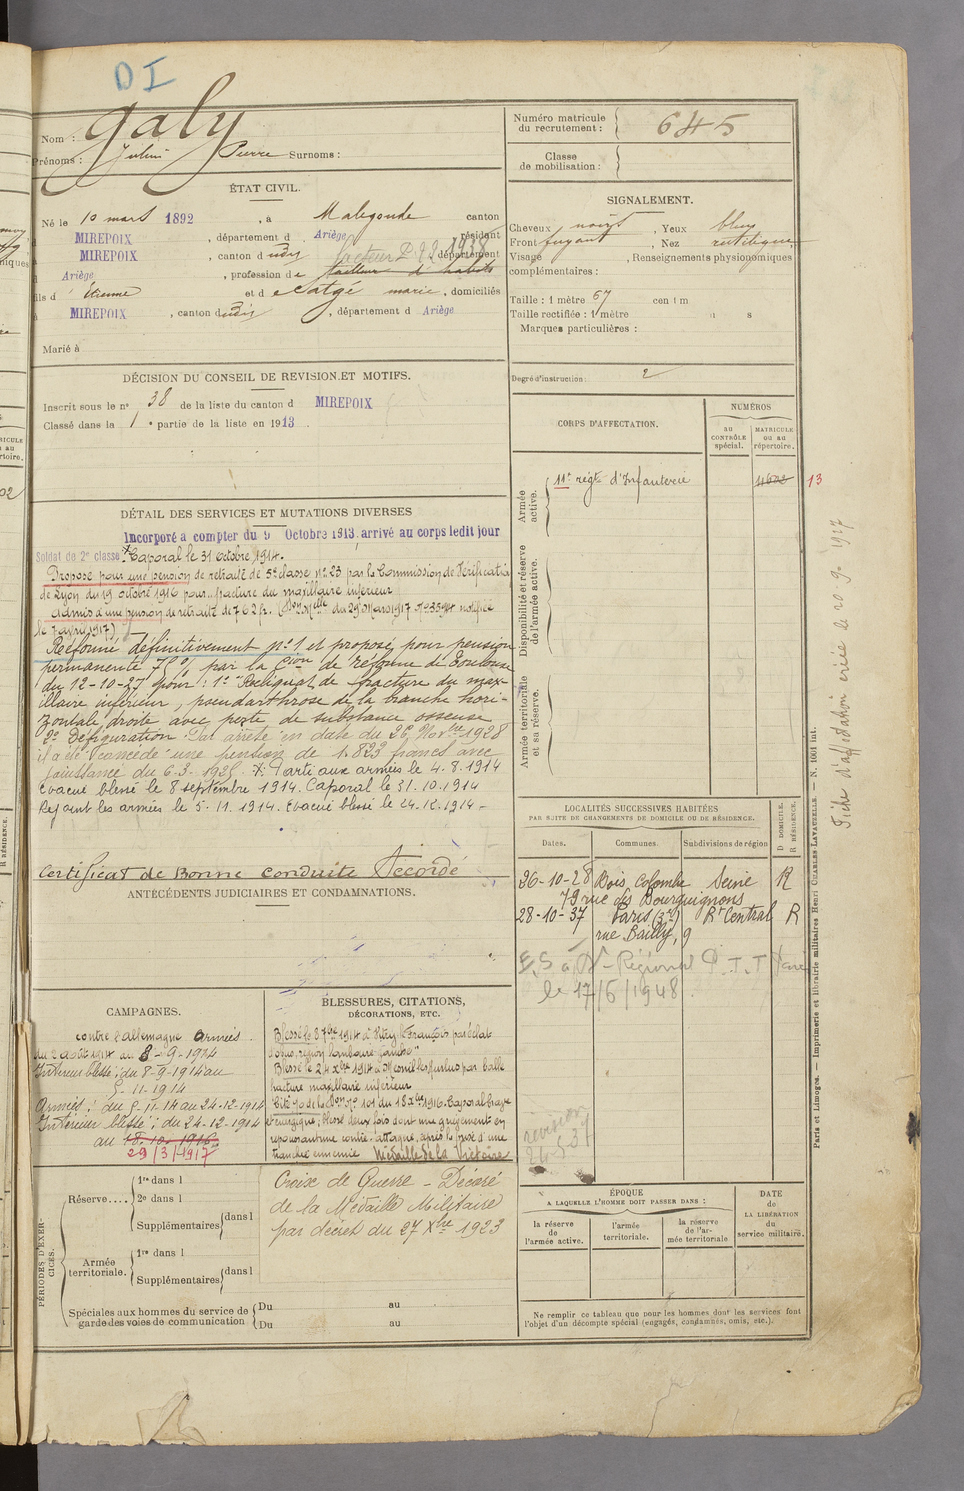 DI
Nom : Galy
Prénoms : Julien Pierre Surnoms :
Numéro matricule du recrutement : 645
Classe de mobilisation :
ÉTAT CIVIL.
Né le 10 mars 1892, à Malegoude canton
d MIREPOIX, département d Ariège résidant
à MIREPOIX, canton d udit département
d Ariège, profession de tailleur d'habits
facteur 1938
fils d' Étienne et de Catgé marie, domiciliés
à MIREPOIX, canton dudit, département d Ariège
Marié à
SIGNALEMENT.
Cheveux noirs, Yeux bleus
Front fuyant, Nez rectiligne
Visage , Renseignements physionomiques
complémentaires :
Taille : 1 mètre 67 centim
Taille rectifiée : 1 mètre
Marques particulières :
Degré d'instruction : 2
DÉCISION DU CONSEIL DE REVISION ET MOTIFS.
Inscrit sous le n° 38 de la liste du canton d MIREPOIX
Classé dans la 1e partie de la liste en 1913
CORPS D'AFFECTATION.
NUMÉROS
AU CONTRÔLE spécial.
MATRICULE ou au répertoire.
Armée active.
11e régt d'Infanterie 4602 13
Disponibilité et réserve de l'armée active.
Armée territoriale et sa réserve.
DÉTAIL DES SERVICES ET MUTATIONS DIVERSES
Incorporé à compter du 9 Octobre 1913, arrivé au corps ledit jour
Soldat de 2e classe. Caporal le 31 octobre 1914.
Proposé pour une pension de retraite de 5e classe n° 23 par la Commission de Vérification
de Lyon du 19 octobre 1916 pour fracture du maxillaire inférieur
Admis à une pension de retraite de 762 fr. (Don Mlle du 29 Mars 1917 notifiée
le 7 avril 1917)
Réformé définitivement n° 1 et proposé pour pension
permanente 75% par la Cion de réforme de Toulouse
du 12-10-27 pour : 1° Reliquat de fracture du max-
illaire inférieur, pseudarthrose de la branche hori-
zontale droite avec perte de substance osseuse
2° Défiguration. Par arrêté en date du 26 Novbre 1928
il a été concédé une pension de 1.823 francs avec
jouissance du 6-3-1925. Parti aux armées le 4.8.1914
Évacué blessé le 8 septembre 1914. Caporal le 31.10.1914
Rejoint les armées le 5.11.1914. Évacué blessé le 24.12.1914 -
Certificat de Bonne Conduite Accordé
ANTÉCÉDENTS JUDICIAIRES ET CONDAMNATIONS.
LOCALITÉS SUCCESSIVES HABITÉES
PAR SUITE DE CHANGEMENTS DE DOMICILE OU DE RÉSIDENCE.
D DOMICILE. R RÉSIDENCE.
Dates. Communes. Subdivisions de région
26-10-28 Bois, Colombe Seine R
79 rue des Bourguignons
28-10-37 Paris (3e) Rt Central R
rue Bailly, 9
E,S à Régional P.T.T Paris
le 17/6/1948.
CAMPAGNES.
contre l'allemagne Armées
du 2 août 1914 au 8-9-1914
Intérieur blessé ; du 8-9-1914 au
5-11-1914
Armées ; du 5-11-14 au 24-12-1914
Intérieur blessé ; du 24-12-1914
au 18-10-1916
29/3/1917
BLESSURES, CITATIONS,
DÉCORATIONS, ETC.
Blessé le 8 7bre 1914 à Vitry le François par éclat
d'obus, région lombaire gauche
Blessé le 24 Xbre 1914 à Mesnil les Hurlus par balle
fracture maxillaire inférieur
Cité n° 101 du 18 Xbre 1916. Caporal brave
et énergique ; blessé deux fois dont une grièvement en
repoussant une contre-attaque, après la prise d'une
tranchée ennemie Médaille de la Victoire
Croix de Guerre - Décoré
de la Médaille Militaire
par décret du 27 Xbre 1923
PÉRIODES D'EXERCICES.
Réserve....
1re dans l
2e dans l
Supplémentaires dans l
Armée territoriale.
1re dans l
Supplémentaires dans l
Spéciales aux hommes du service de garde des voies de communication
Du au
Du au
ÉPOQUE
A LAQUELLE L'HOMME DOIT PASSER DANS :
la réserve de l'armée active.
l'armée territoriale.
la réserve de l'armée territoriale
DATE de LA LIBÉRATION du service militaire.
Ne remplir ce tableau que pour les hommes dont les services font
l'objet d'un décompte spécial (engagés, condamnés, omis, etc.).
Paris et Limoges. — Imprimerie et librairie militaires Henri CHARLES-LAVAUZELLE. — N. 1001 int.
Fiche d'affectation créée le 20.9.1917